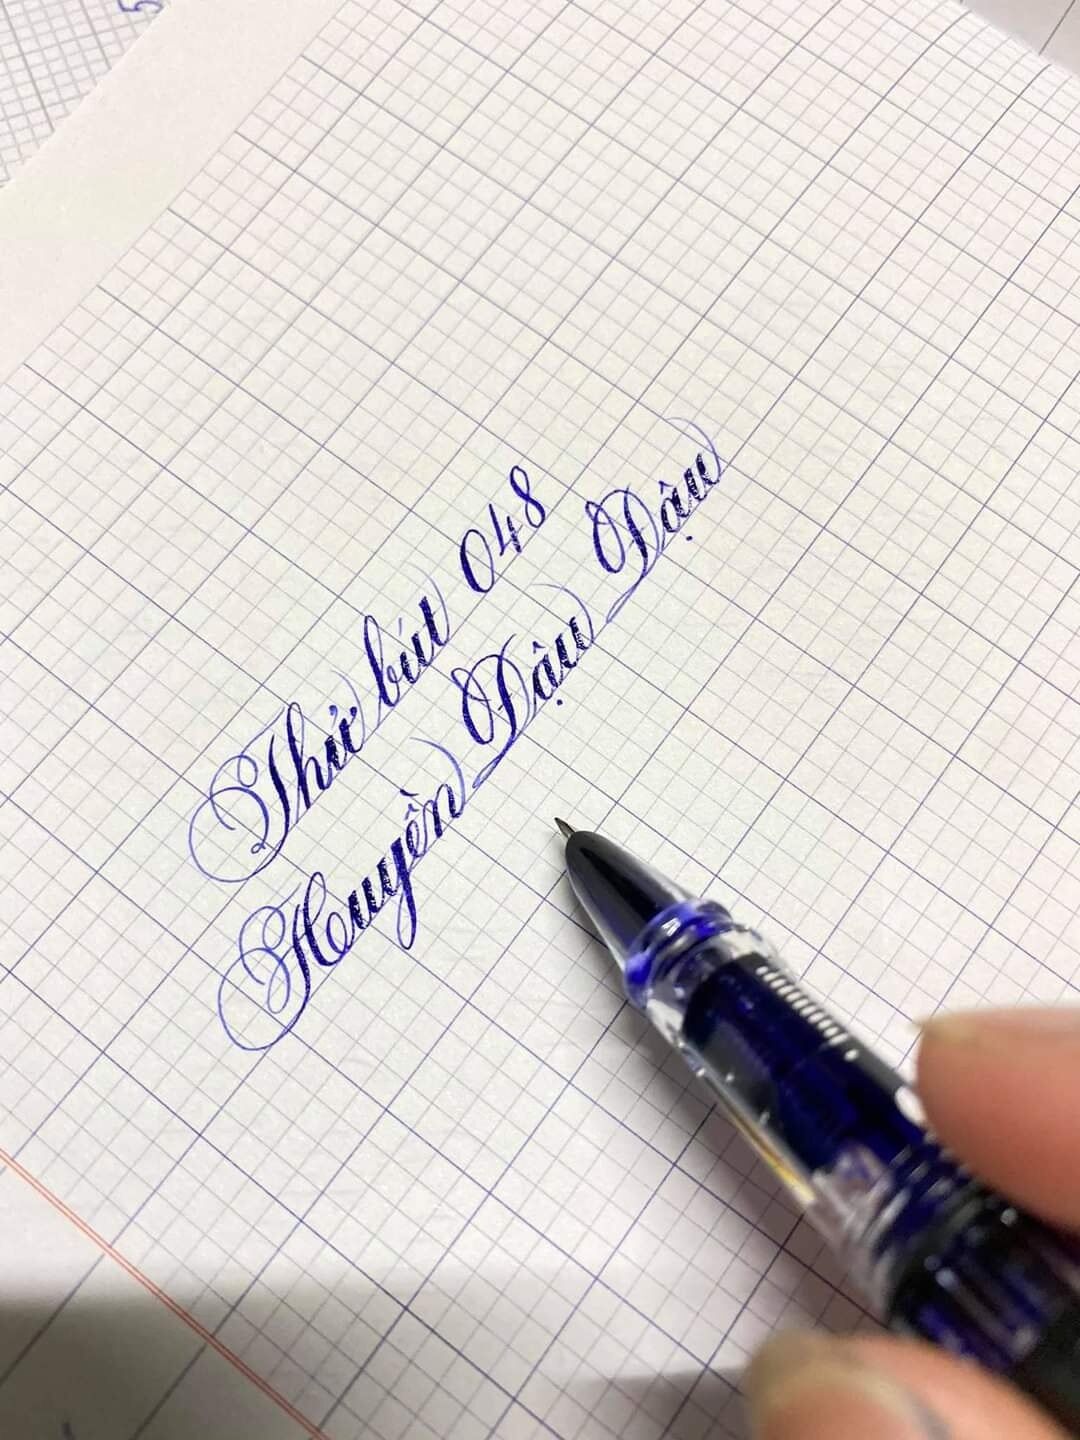 Thử bút 048
Huyền Dậu Dậu